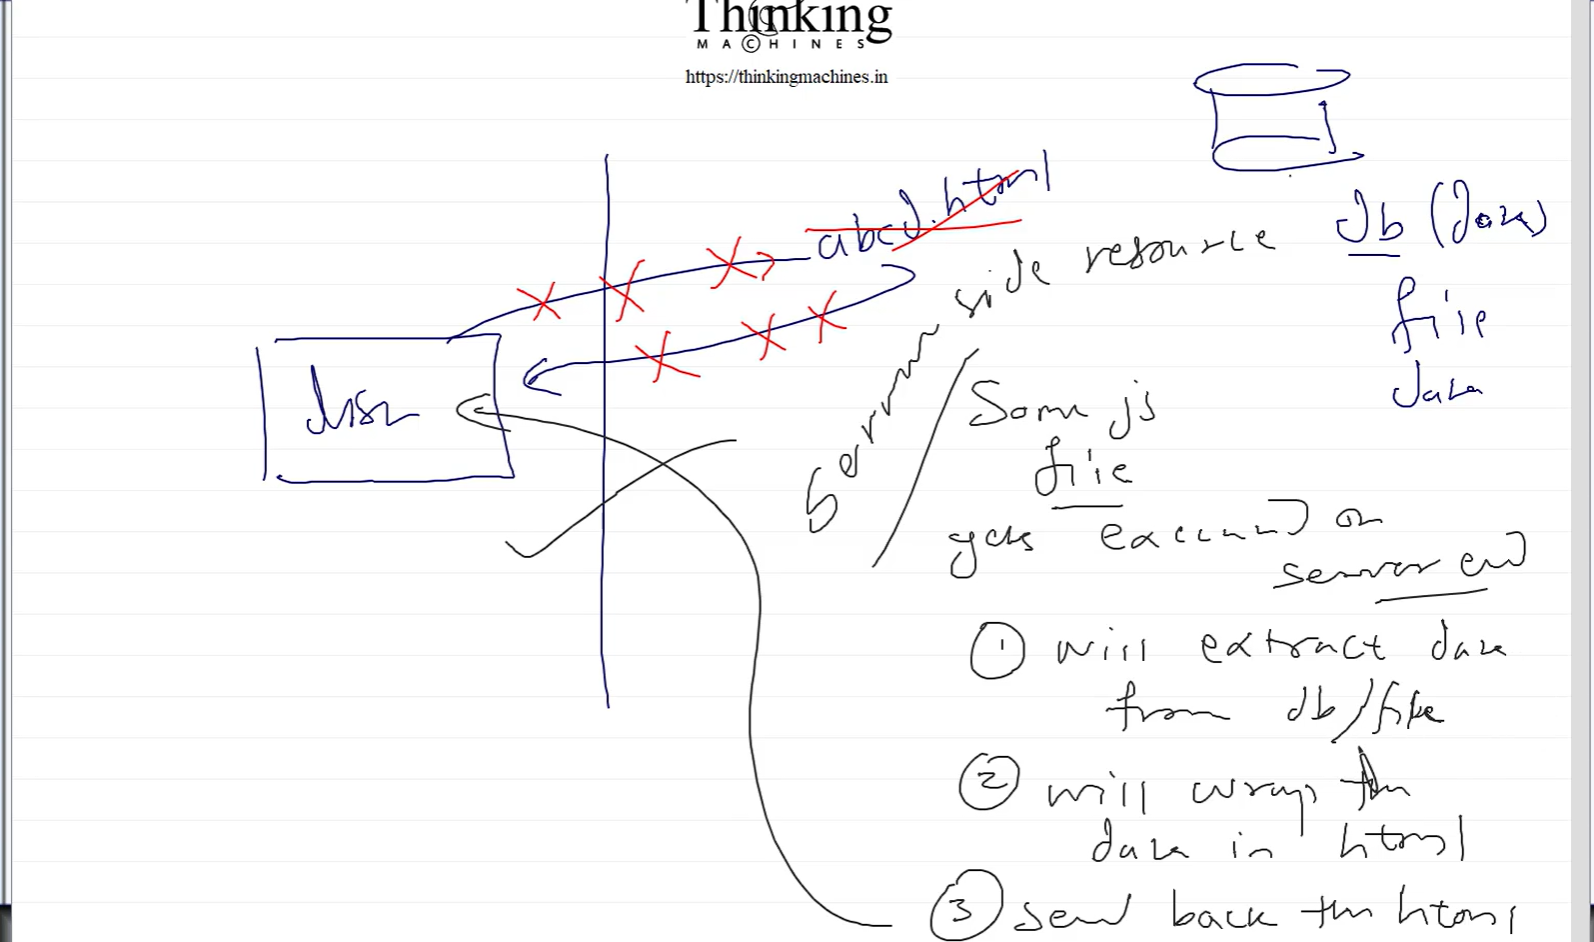 Thinking
MACHINES
https://thinkingmachines.in
abcd.html
server side resource
db (data)
file
data
Some js
file
gets executed on
server end
① will extract data
from db/file
② will wrap the
data in html
③ send back the html